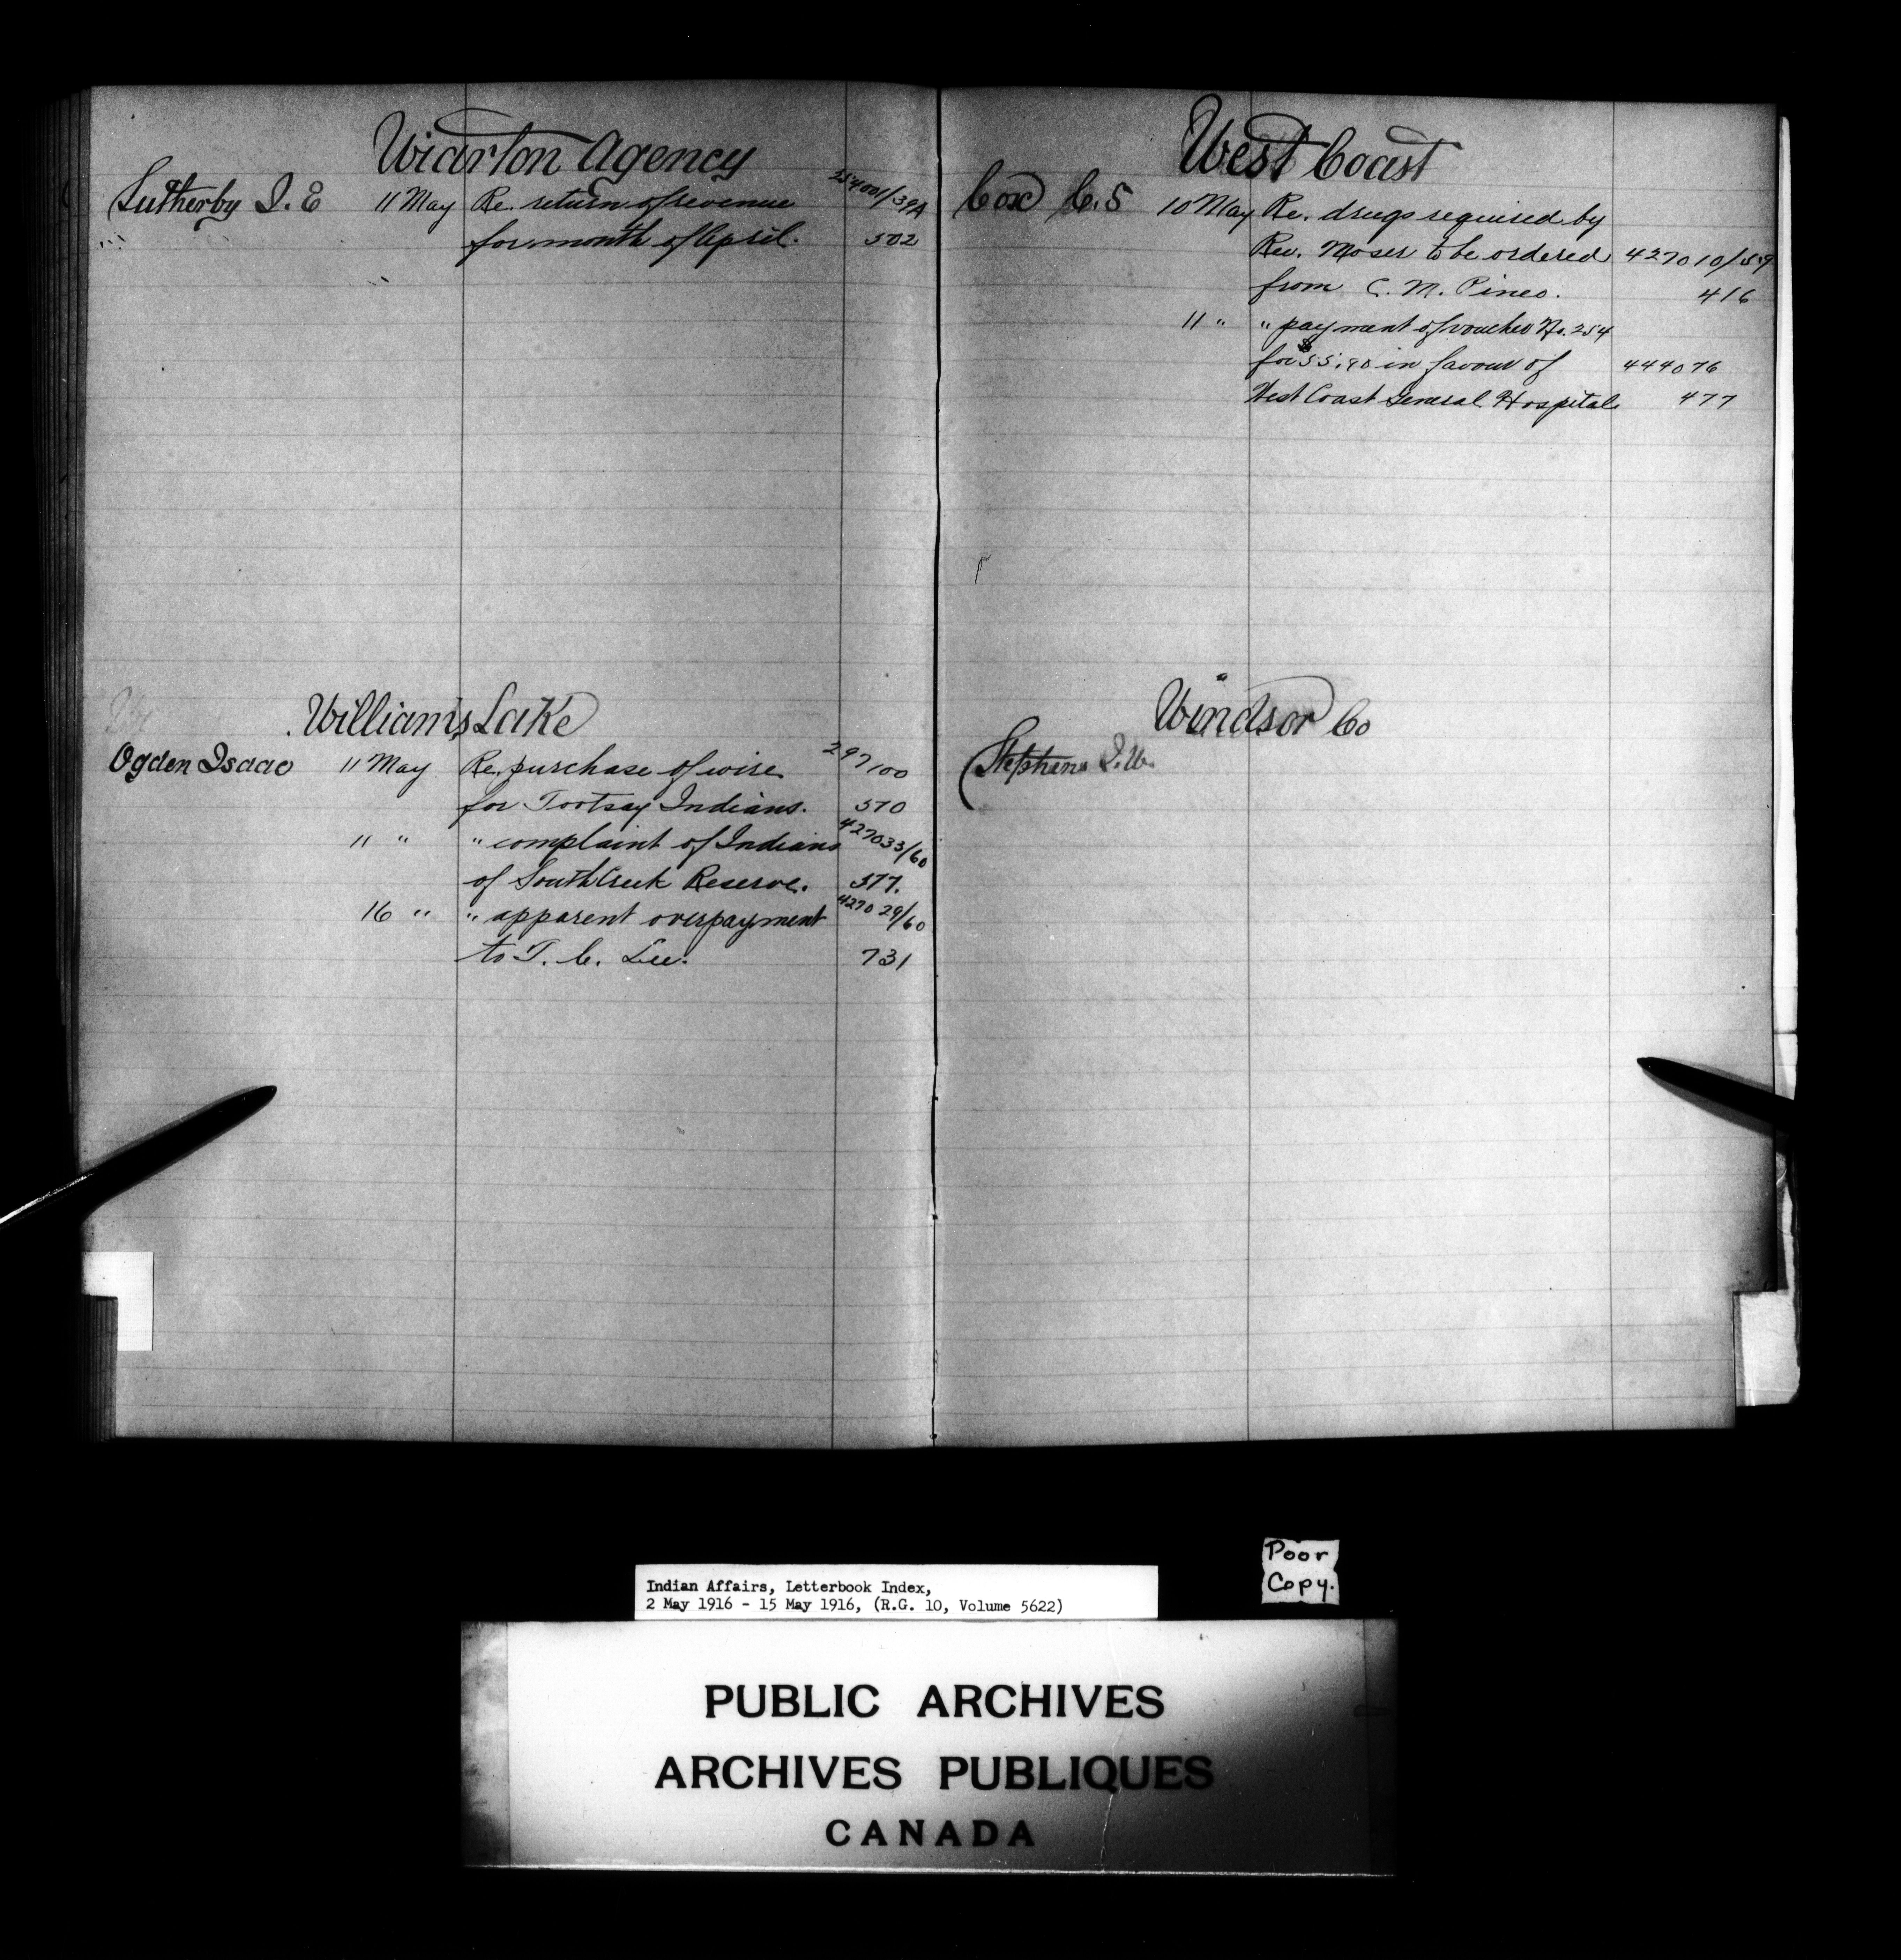 Wiarton Agency
Sutherby I. E 11 May Re. return of revenue 254001/39A
" for month of April. 502
Williams Lake
Ogden Isaac 11 May Re. purchase of wire 297100
for Tootsay Indians. 570
11 " " complaint of Indians 427033/60
of South Creek Reserve. 577.
16 " " apparent overpayment 427029/60
to T. C. Lee. 731
West Coast
Cox C. S 10 May Re. drugs required by
Rev. Moser to be ordered 427010/59
from C. M. Pineo. 416
11 " " payment of voucher No. 254
for $55.90 in favour of 444076
West Coast General Hospital. 477
Windsor Co
Stephens I. W.
Poor
Copy.
Indian Affairs, Letterbook Index,
2 May 1916 - 15 May 1916, (R.G. 10, Volume 5622)
PUBLIC ARCHIVES
ARCHIVES PUBLIQUES
CANADA